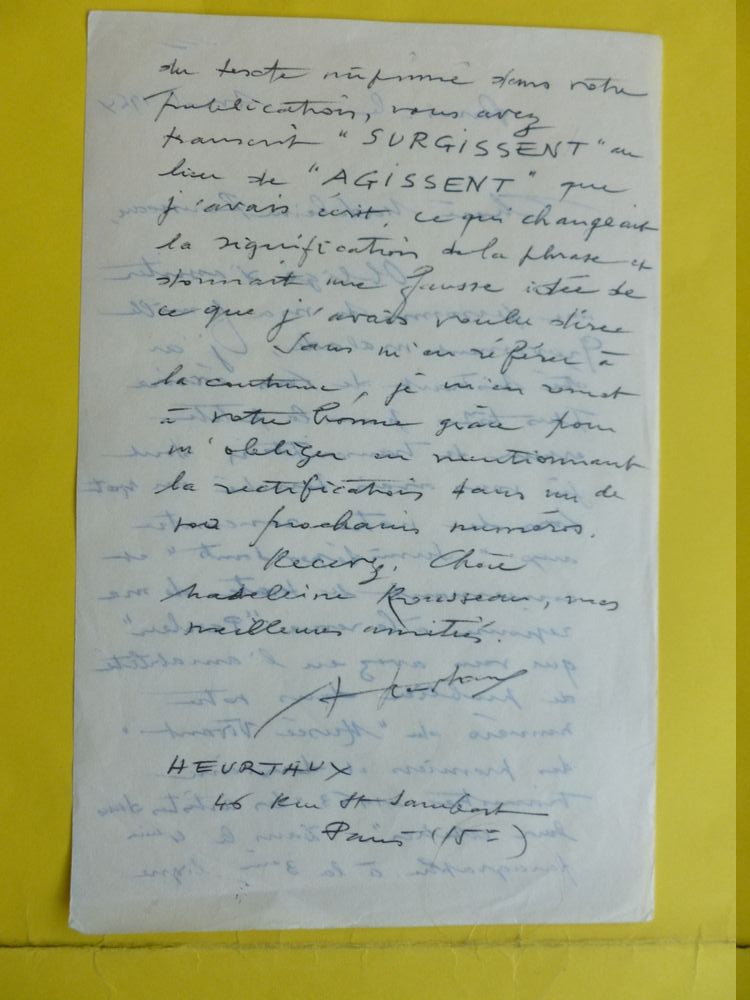 du texte imprimé dans votre
publication, vous avez
transcrit "SURGISSENT" au
lieu de "AGISSENT" que
j'avais écrit, ce qui changeait
la signification de la phrase et
donnait une fausse idée de
ce que j'avais voulu dire
Sans m'en référer à
la coutume, je m'en remet
à votre bonne grâce pour
m'obliger en mentionnant
la rectification dans un de
vos prochains numéros.
Recevez, Chère
Madeleine Rousseau, mes
meilleures amitiés.
HEURTAUX
46 Rue St Lambert
Paris (15e)